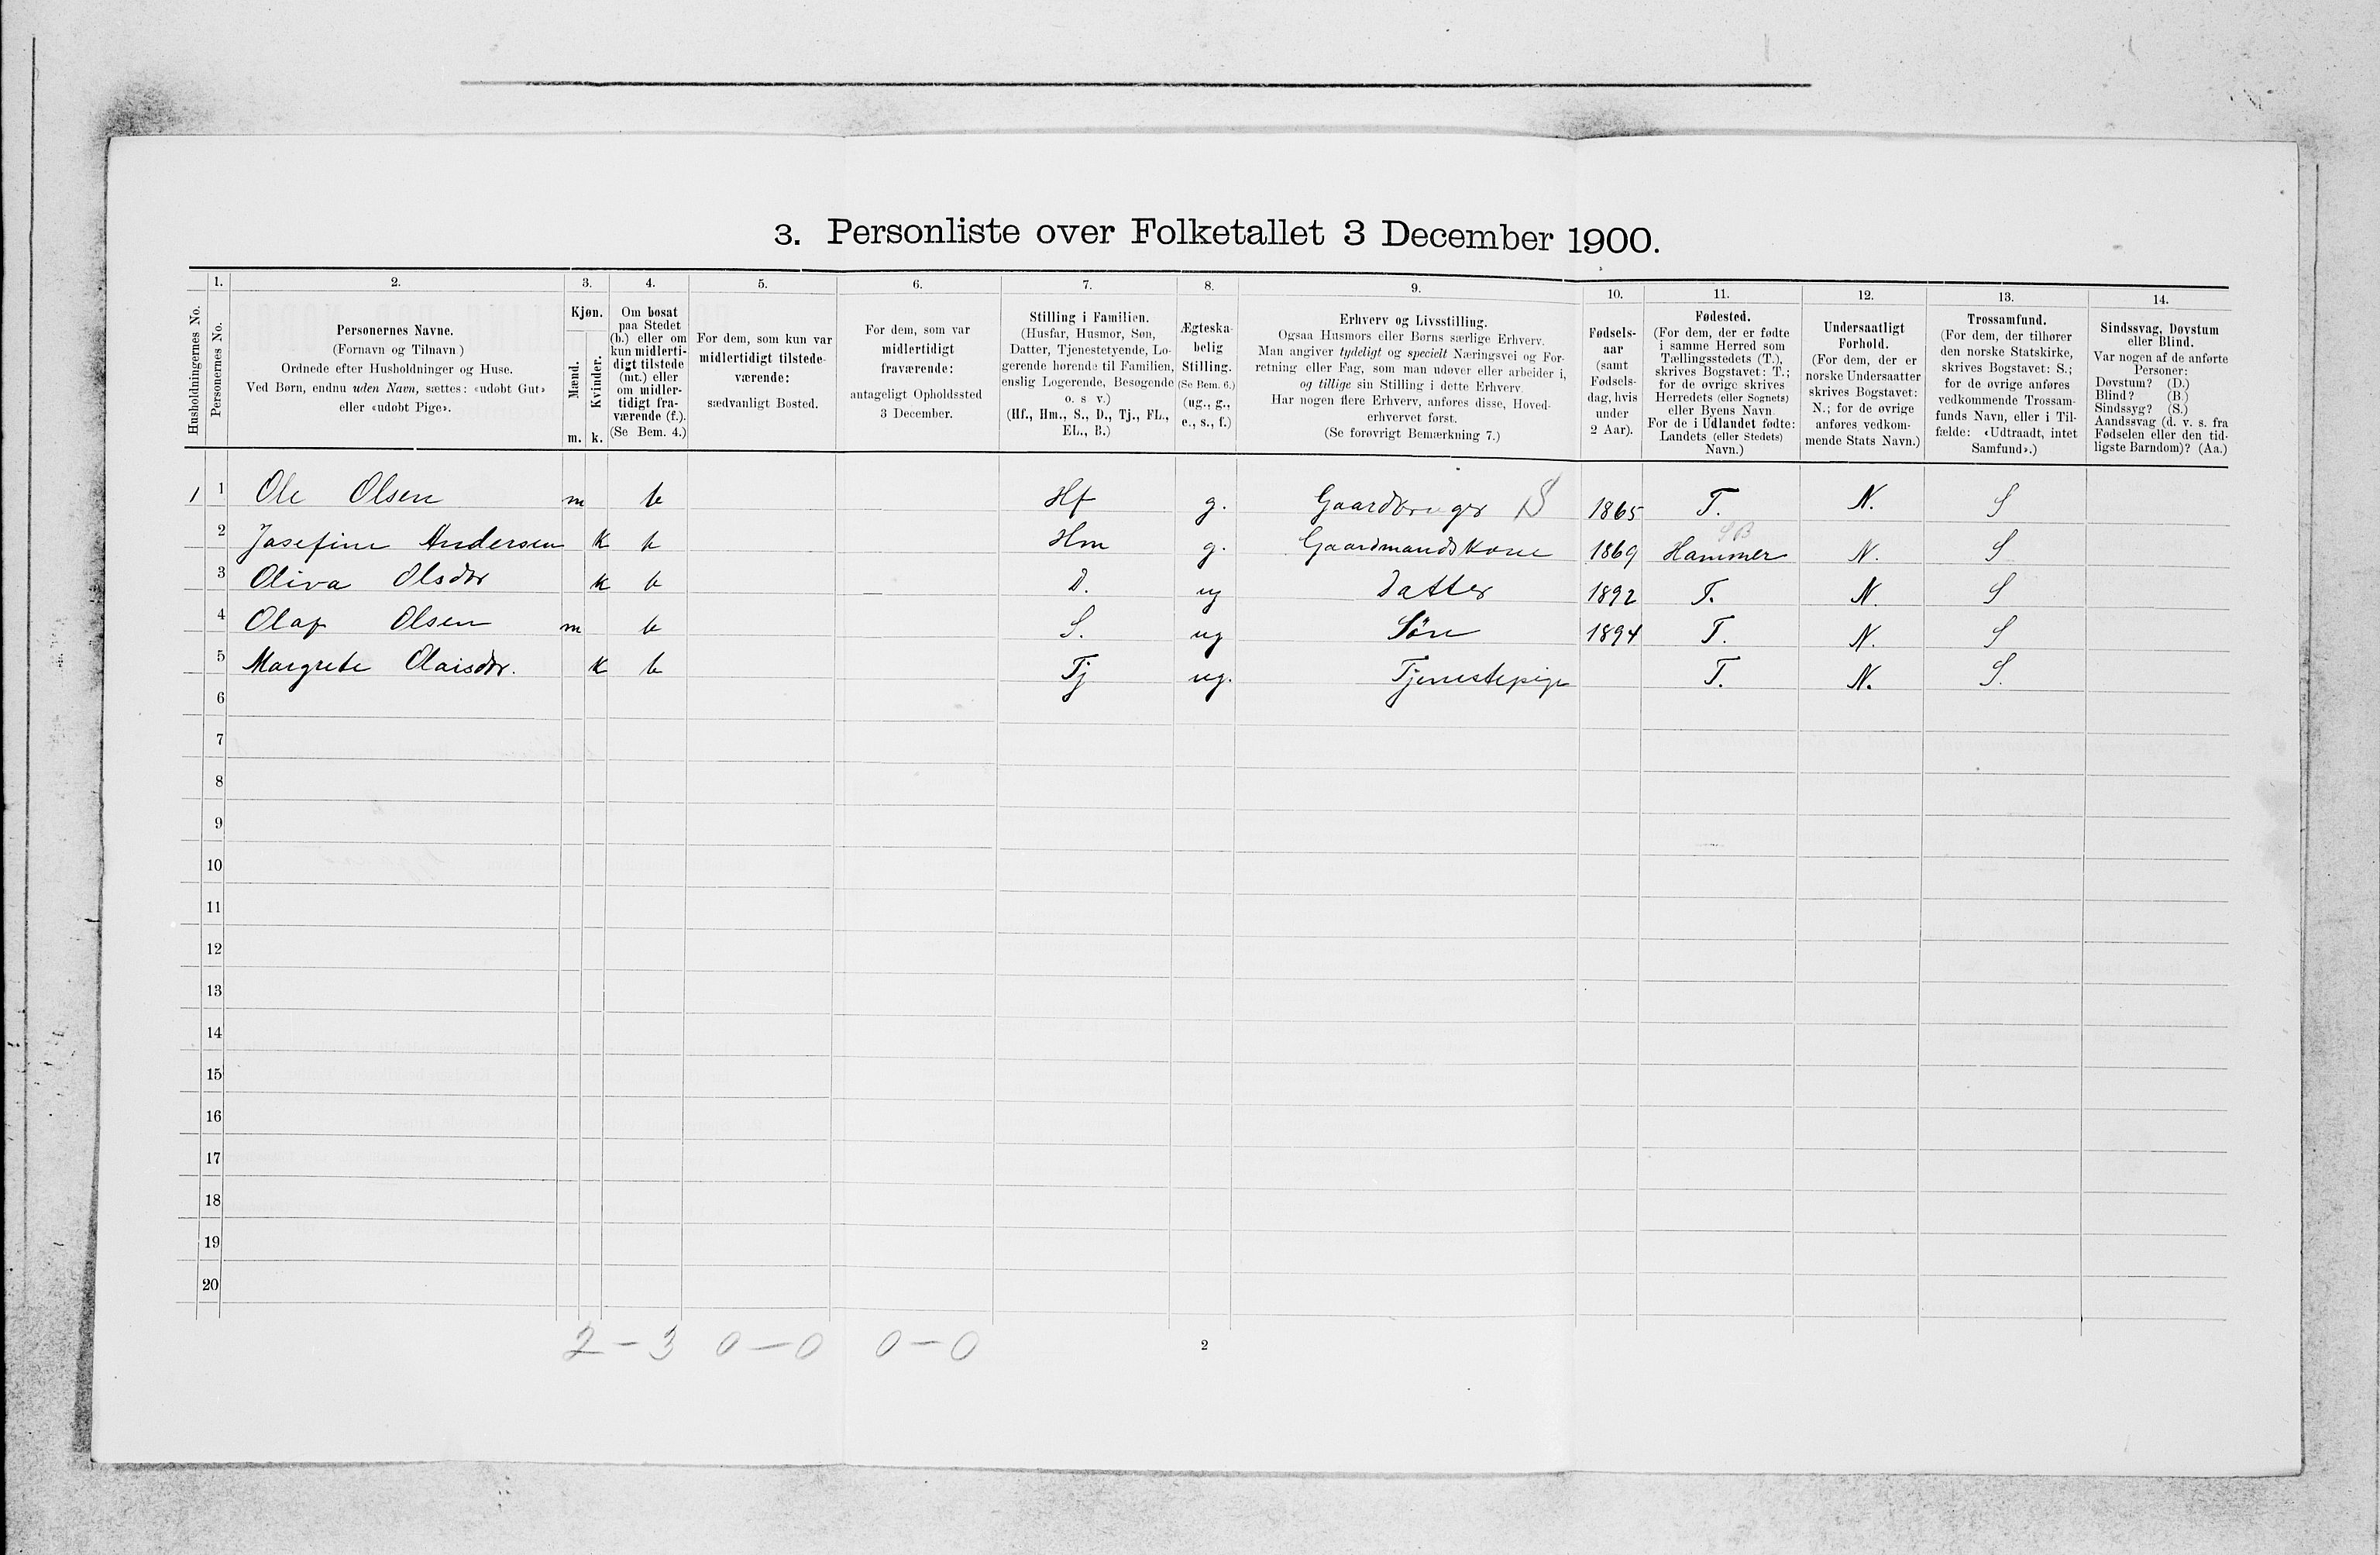 3. Personliste over Folketallet 3 December 1900.
1. 2. 3. 4. 5. 6. 7. 8. 9. 10. 11. 12. 13. 14.
Husholdningernes No.
Personernes No.
Personernes Navne.
(Fornavn og Tilnavn)
Ordnede efter Husholdninger og Huse.
Ved Børn, endnu uden Navn, sættes: «udøbt Gut»
eller «udøbt Pige».
Kjøn.
Mænd.
Kvinder.
m. k.
Om bosat
paa Stedet
(b.) eller om
kun midlerti-
digt tilstede
(mt.) eller
om midler-
tidigt fra-
værende (f.).
(Se Bem. 4.)
For dem, som kun var
midlertidigt tilstede-
værende:
sædvanligt Bosted.
For dem, som var
midlertidigt
fraværende:
antageligt Opholdssted
3 December.
Stilling i Familien.
(Husfar, Husmor, Søn,
Datter, Tjenestetyende, Lo-
gerende hørende til Familien,
enslig Logerende, Besøgende
o. s v.)
(Hf., Hm., S., D., Tj., FL.,
EL., B.)
Ægteska-
belig
Stilling.
(Se Bem. 6.)
(ug., g.,
e., s., f.)
Erhverv og Livsstilling.
Ogsaa Husmors eller Børns særlige Erhverv.
Man angiver tydeligt og specielt Næringsvei og For-
retning eller Fag, som man udøver eller arbeider i,
og tillige sin Stilling i dette Erhverv.
Har nogen flere Erhverv, anføres disse, Hoved-
erhvervet først.
(Se forøvrigt Bemærkning 7.)
Fødsels-
aar
(samt
Fødsels-
dag, hvis
under
2 Aar).
Fødested.
(For dem, der er fødte
i samme Herred som
Tællingsstedets (T.),
skrives Bogstavet: T.;
for de øvrige skrives
Herredets (eller Sognets)
eller Byens Navn.
For de i Udlandet fødte:
Landets (eller Stedets)
Navn.)
Undersaatligt
Forhold.
(For dem, der er
norske Undersaatter
skrives Bogstavet:
N.; for de øvrige
anføres vedkom-
mende Stats Navn.)
Trossamfund.
(For dem, der tilhører
den norske Statskirke,
skrives Bogstavet: S.;
for de øvrige anføres
vedkommende Trossam-
funds Navn, eller i Til-
fælde: «Udtraadt, intet
Samfund».)
Sindssvag, Døvstum
eller Blind.
Var nogen af de anførte
Personer:
Døvstum? (D.)
Blind? (B.)
Sindssyg? (S.)
Aandssvag (d. v. s. fra
Fødselen eller den tid-
ligste Barndom)? (Aa.)
1 1 Ole Olsen m b Hf g. Gaardbruger S 1865 T. N. S
2 Josefine Andersen k b Hm g. Gaardmandskone 1869 Hammer N. S
3 Oliva Olsdtr k b D. ug Datter 1892 T. N. S
4 Olaf Olsen m b S. ug Sön 1894 T. N. S
5 Margrete Olaisdtr. k b Tj ug. Tjenestepige T. N. S.
6
7
8
9
10
11
12
13
14
15
16
17
18
19
20
2 – 3 0 – 0 0 – 0
2